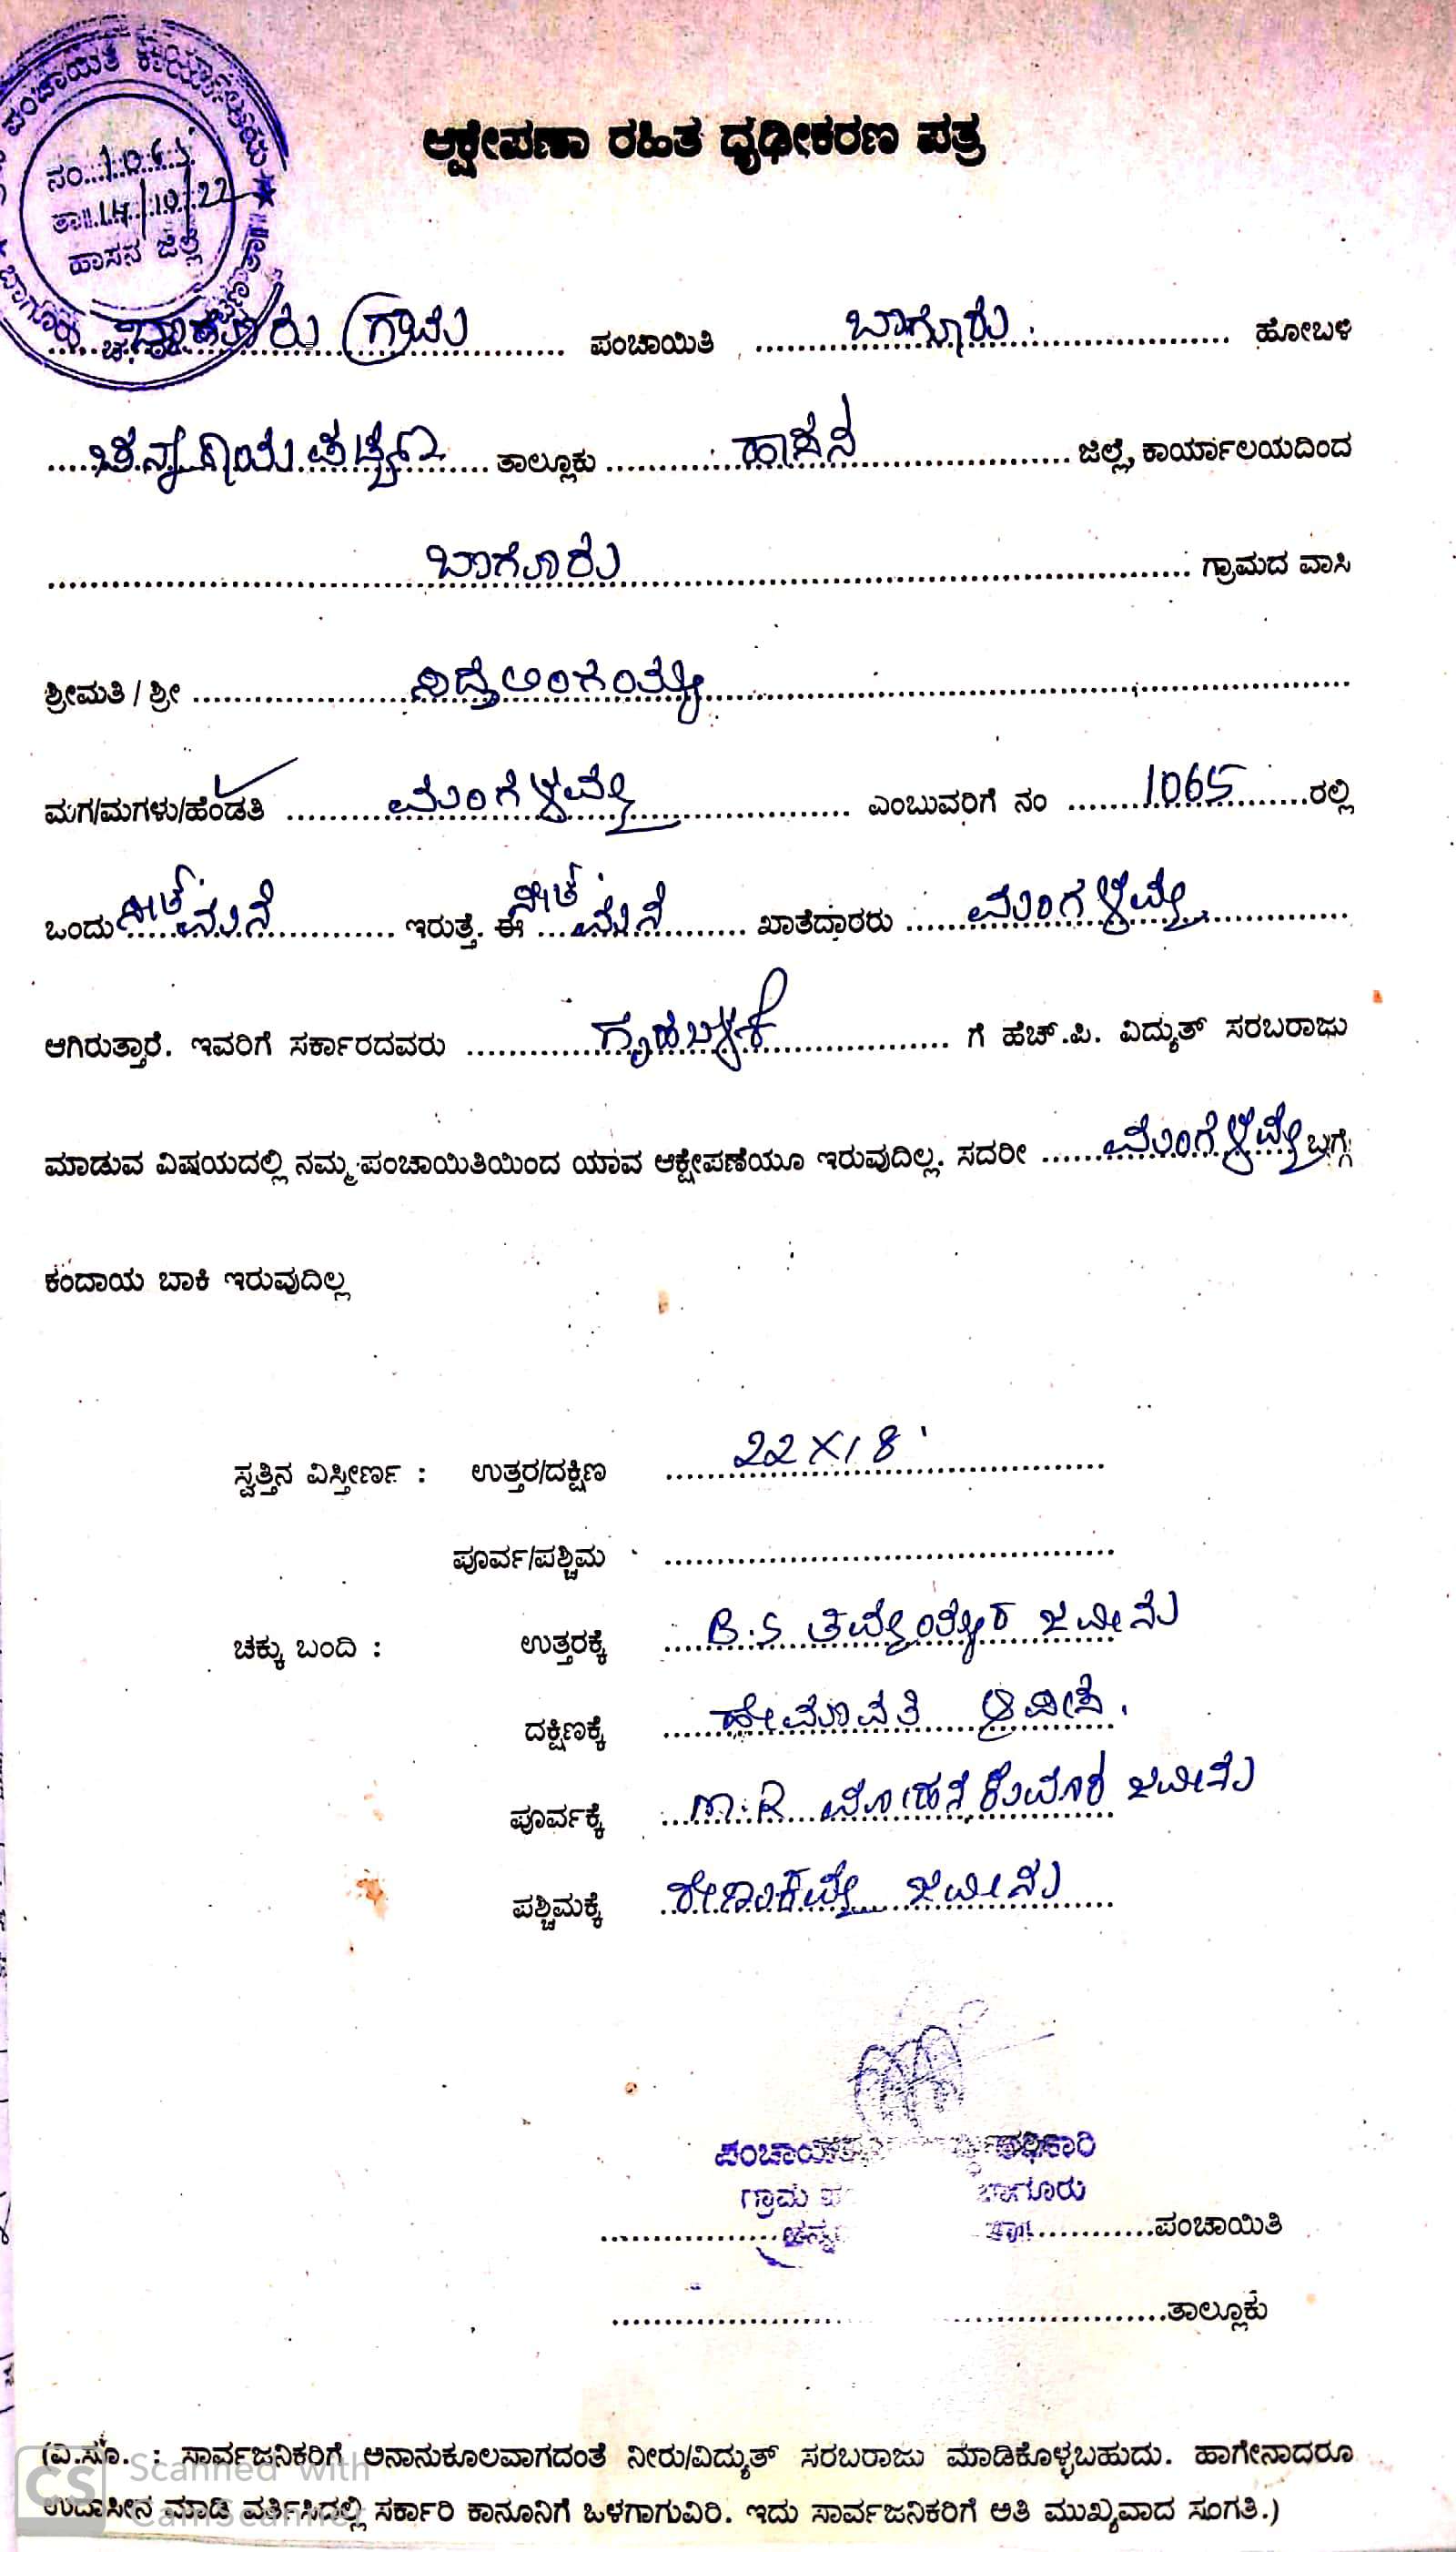 ಪಂಚಾಯಿತಿ ಕಾರ್ಯಾಲಯ
ನಂ...1065
ತಾ॥.14/10/22
ಹಾಸನ ಜಿಲ್ಲೆ
ಆಕ್ಷೇಪಣಾ ರಹಿತ ಧೃಢೀಕರಣ ಪತ್ರ
ಬಾಗೂರು ಗ್ರಾಮ ಪಂಚಾಯಿತಿ ಬಾಗೂರು ಹೋಬಳಿ
ಚನ್ನರಾಯಪಟ್ಟಣ ತಾಲ್ಲೂಕು ಹಾಸನ ಜಿಲ್ಲೆ, ಕಾರ್ಯಾಲಯದಿಂದ
ಬಾಗೂರು ಗ್ರಾಮದ ವಾಸಿ
ಶ್ರೀಮತಿ / ಶ್ರೀ
ಮಗ/ಮಗಳು/ಹೆಂಡತಿ ಮಂಗಳಮ್ಮ ಎಂಬುವರಿಗೆ ನಂ 1065 ರಲ್ಲಿ
ಒಂದು ಮನೆ ಇರುತ್ತೆ. ಈ ಮನೆ ಖಾತೆದಾರರು ಮಂಗಳಮ್ಮ
ಆಗಿರುತ್ತಾರೆ. ಇವರಿಗೆ ಸರ್ಕಾರದವರು ಗೃಹಬಳಕೆ ಗೆ ಹೆಚ್.ಪಿ. ವಿದ್ಯುತ್ ಸರಬರಾಜು
ಮಾಡುವ ವಿಷಯದಲ್ಲಿ ನಮ್ಮ ಪಂಚಾಯಿತಿಯಿಂದ ಯಾವ ಆಕ್ಷೇಪಣೆಯೂ ಇರುವುದಿಲ್ಲ. ಸದರೀ ಮಂಗಳಮ್ಮ ಬಗ್ಗೆ
ಕಂದಾಯ ಬಾಕಿ ಇರುವುದಿಲ್ಲ
ಸ್ವತ್ತಿನ ವಿಸ್ತೀರ್ಣ : ಉತ್ತರ/ದಕ್ಷಿಣ 22X18'
ಪೂರ್ವ/ಪಶ್ಚಿಮ
ಚಕ್ಕು ಬಂದಿ : ಉತ್ತರಕ್ಕೆ B.S ತಿಮ್ಮಯ್ಯರ ಜಮೀನು
ದಕ್ಷಿಣಕ್ಕೆ ಹೇಮಾವತಿ
ಪೂರ್ವಕ್ಕೆ M.R ಮೋಹನ ಕುಮಾರ ಜಮೀನು
ಪಶ್ಚಿಮಕ್ಕೆ ರೇಣುಕಮ್ಮ ಜಮೀನು
ಗ್ರಾಮ ಬಾಗೂರು
ಪಂಚಾಯಿತಿ
ತಾಲ್ಲೂಕು
(ವಿ.ಸೂ. : ಸಾರ್ವಜನಿಕರಿಗೆ ಅನಾನುಕೂಲವಾಗದಂತೆ ನೀರು/ವಿದ್ಯುತ್ ಸರಬರಾಜು ಮಾಡಿಕೊಳ್ಳಬಹುದು. ಹಾಗೇನಾದರೂ
ಉದಾಸೀನ ಮಾಡಿ ವರ್ತಿಸಿದಲ್ಲಿ ಸರ್ಕಾರಿ ಕಾನೂನಿಗೆ ಒಳಗಾಗುವಿರಿ. ಇದು ಸಾರ್ವಜನಿಕರಿಗೆ ಅತಿ ಮುಖ್ಯವಾದ ಸಂಗತಿ.)
CS Scanned with
CamScanner